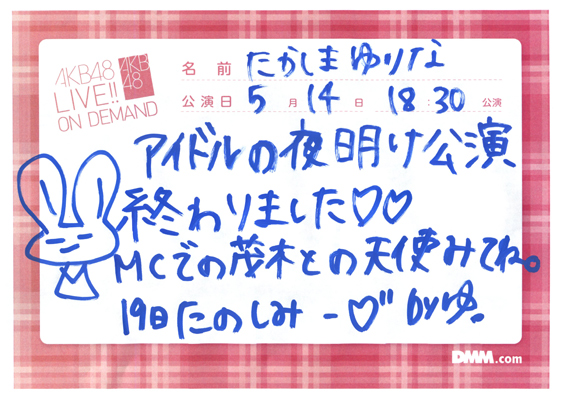 AKB48
LIVE!!
ON DEMAND
AKB
48
名前 たかしまゆりな
公演日 5月14日 18:30公演
アイドルの夜明け公演
終わりました♡♡
MCでの茂木との天使みてね。
19日たのしみー♡" byゆ.
DMM.com